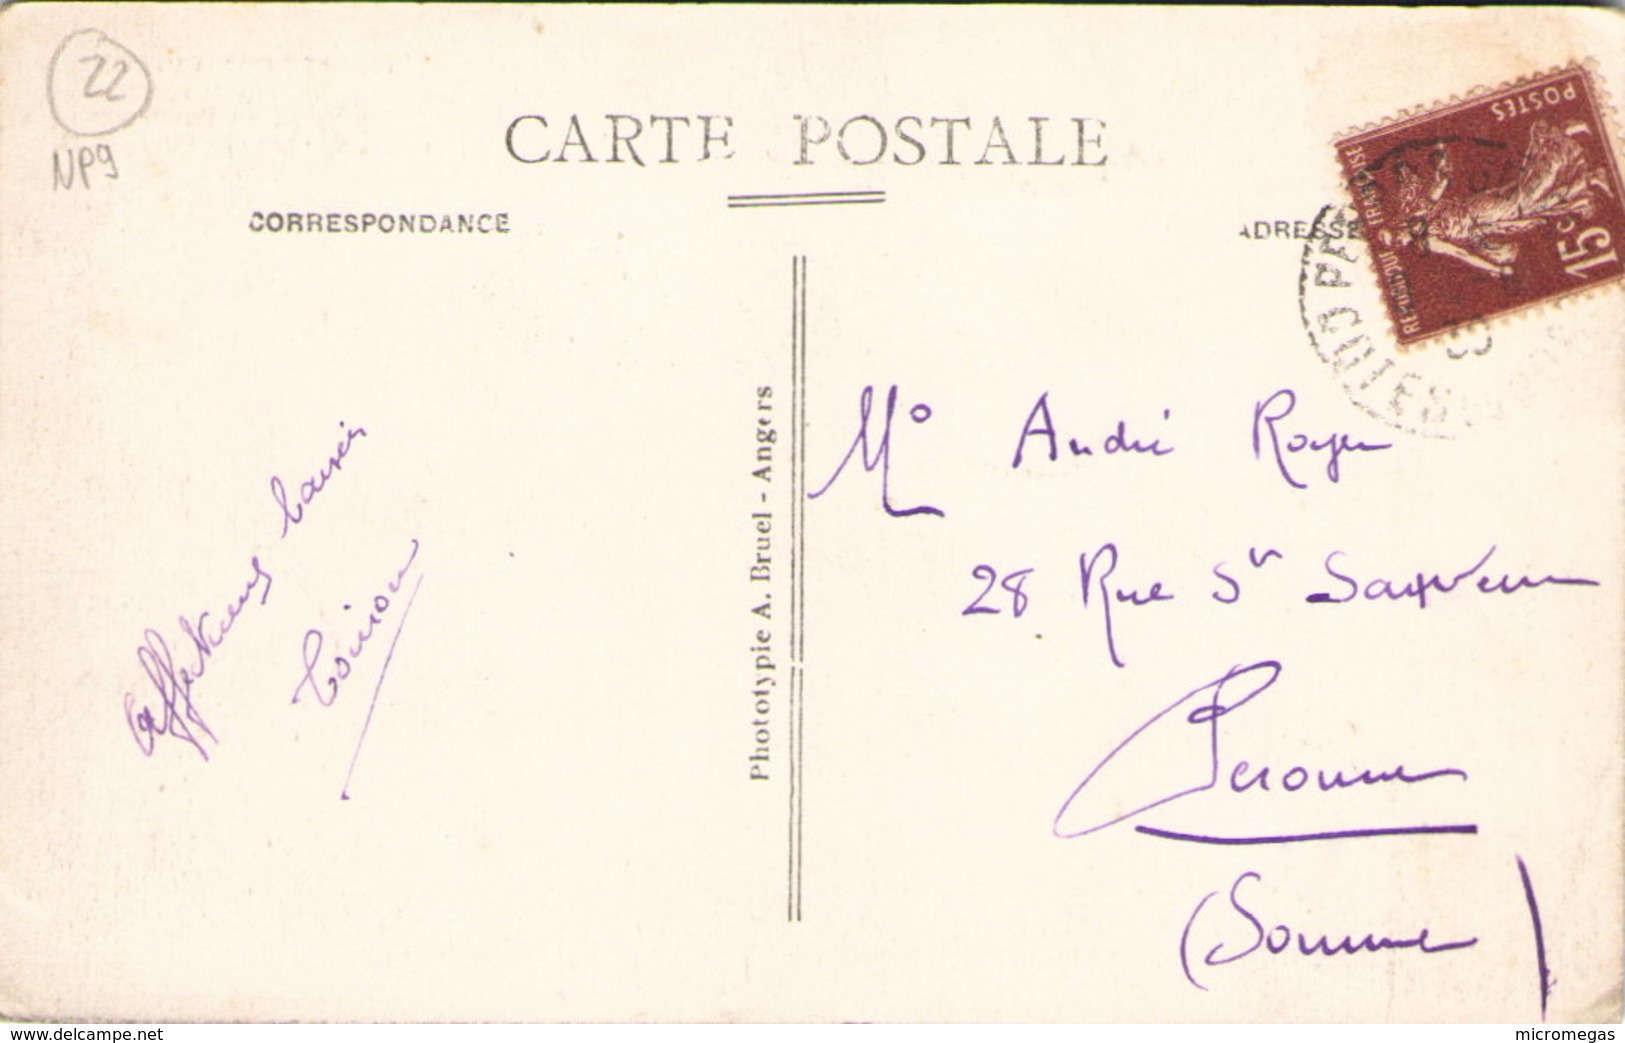 22
NP9
CARTE POSTALE
CORRESPONDANCE
ADRESSE
POSTES
REPUBLIQUE FRANÇAISE
15c
COTES
Phototypie A. Bruel - Angers
Affectueux baisers
Toinon
Mr André Royer
28 Rue St Sauveur
Peronne
(Somme)
www.delcampe.net
micromegas